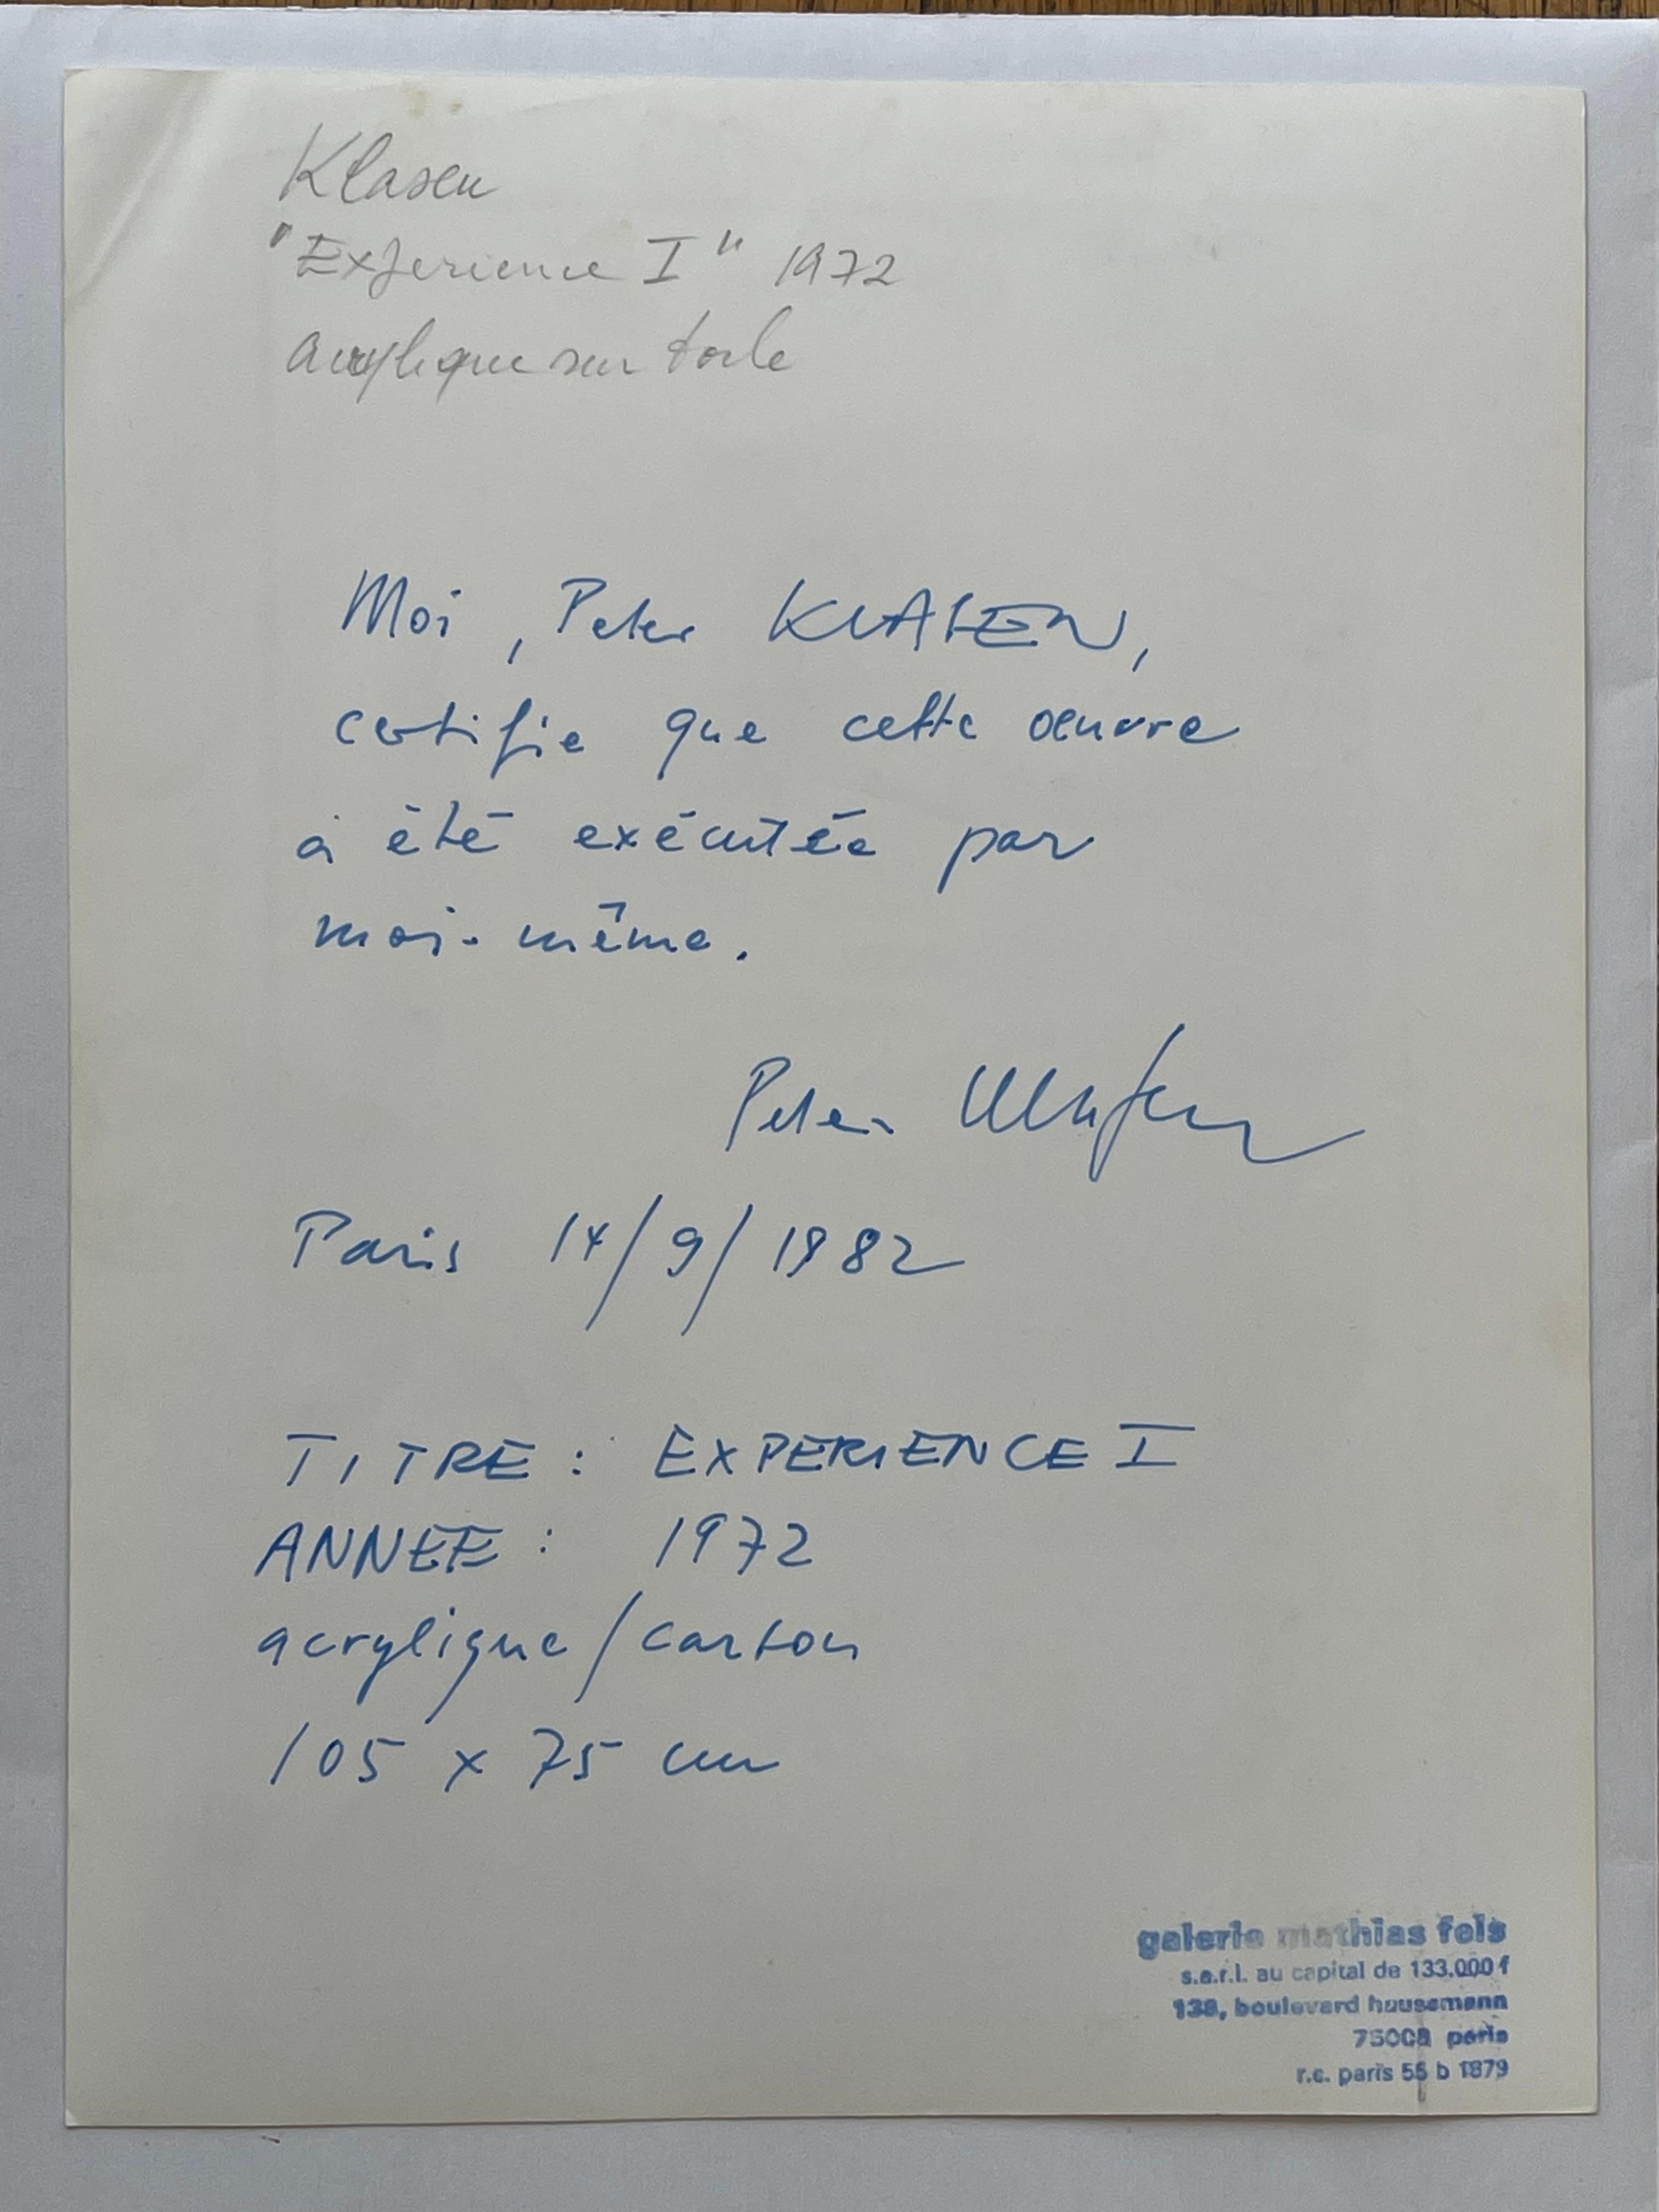 Klasen
"Experience I" 1972
acrylique sur toile
Moi, Peter KLASEN,
certifie que cette oeuvre
a été exécutée par
moi-même.
Peter Klasen
Paris 14/9/1982
TITRE : EXPERIENCE I
ANNEE : 1972
acrylique/carton
105 x 75 cm
galerie mathias fels
s.a.r.l. au capital de 133.000 f
138, boulevard haussmann
75008 paris
r.c. paris 55 b 1879